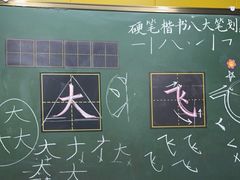 硬笔楷书八大笔划
一丨八丶㇀㇕
大 飞
大
大大
大大
大大
飞飞
飞飞